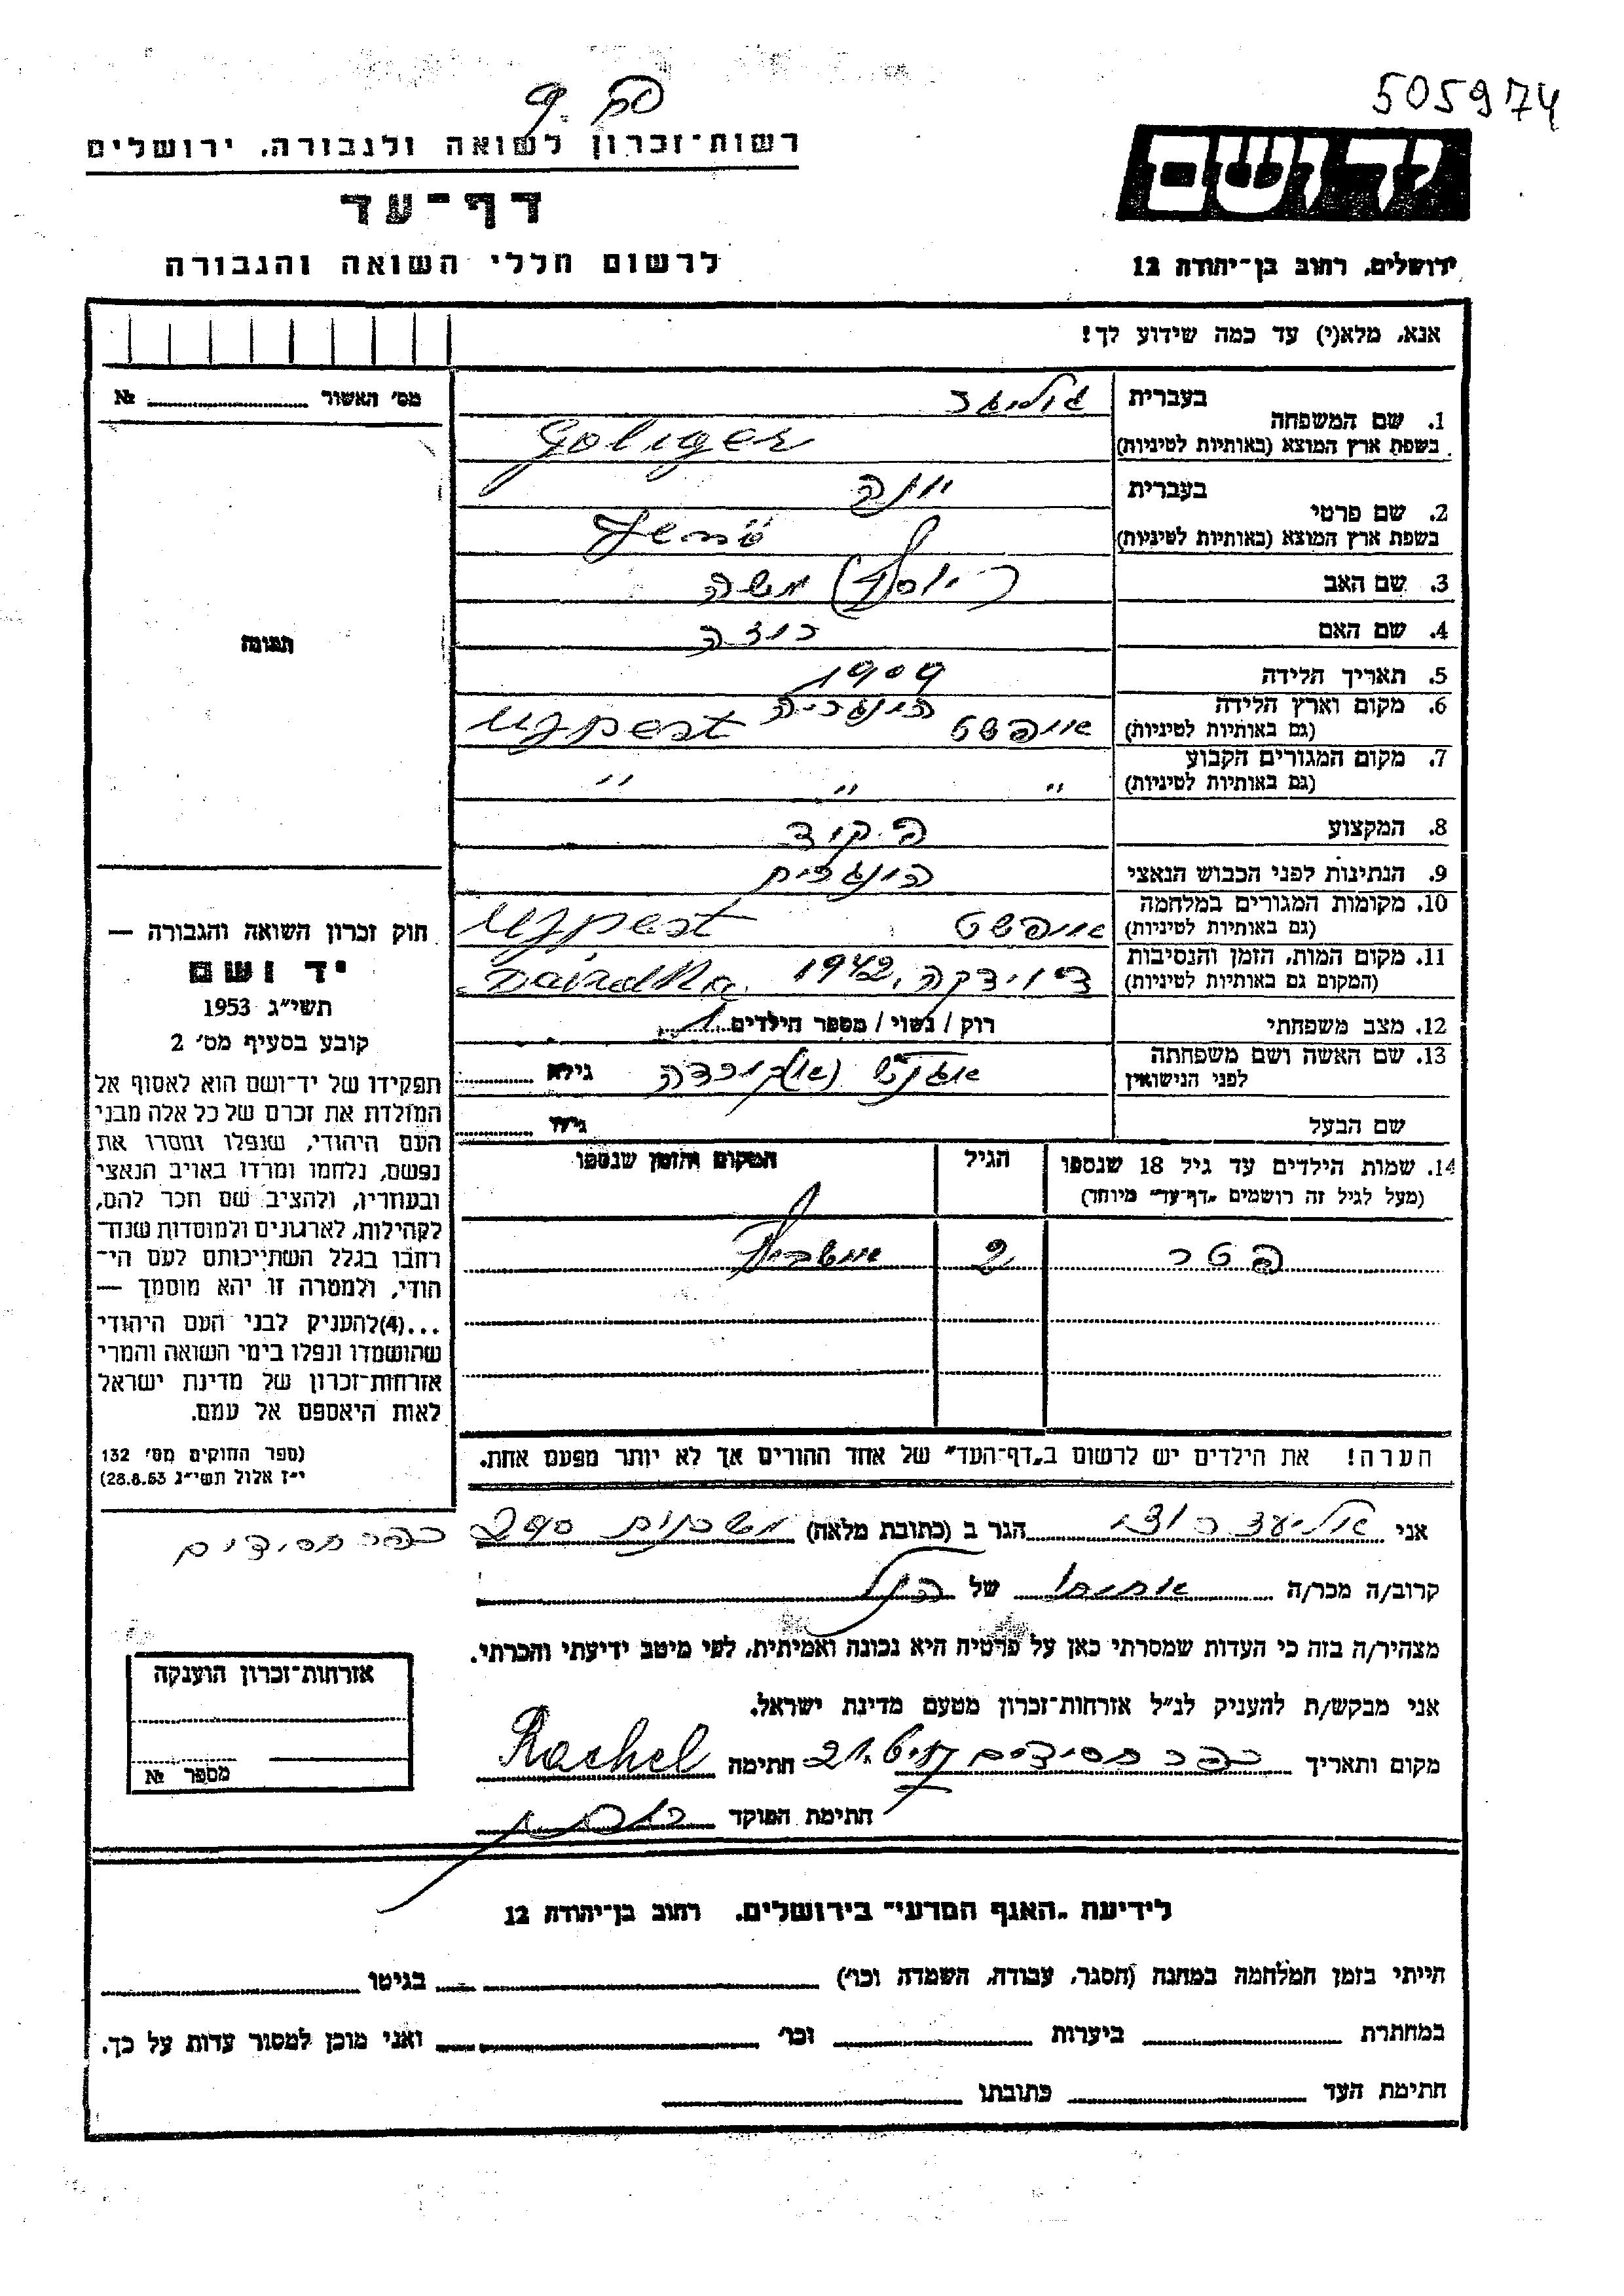 505974
רשות־זכרון לשואה ולגבורה, ירושלים
דף־עד
לרשום חללי השואה והגבורה
ירושלים, רחוב בן־יהודה 12
אנא, מלא(י) עד כמה שידוע לך!
מס' האשור № 
תמונה
1. שם המשפחה
בעברית גוליגר
בשפת ארץ המוצא (באותיות לטיניות) Goliger
2. שם פרטי
בעברית יונה
בשפת ארץ המוצא (באותיות לטיניות) Jenö
3. שם האב (יוסף) משה
4. שם האם רוזה
5. תאריך הלידה 1909
6. מקום וארץ הלידה הונגריה
(גם באותיות לטיניות) אויפשט Ujpest
7. מקום המגורים הקבוע
(גם באותיות לטיניות) " " "
8. המקצוע פקיד
9. הנתינות לפני הכבוש הנאצי הונגרית
10. מקומות המגורים במלחמה
(גם באותיות לטיניות) אויפשט Ujpest
11. מקום המות, הזמן והנסיבות
(המקום גם באותיות לטיניות) דוידקה, 1942 Davidka
12. מצב משפחתי רוק / נשוי / מספר הילדים 1
13. שם האשה ושם משפחתה
לפני הנישואין גילה
שם הבעל גילו
14. שמות הילדים עד גיל 18 שנספו
(מעל לגיל זה רושמים "דף־עד" מיוחד)
הגיל
המקום והזמן שנספו
פטר 2
הערה! את הילדים יש לרשום ב"דף־העד" של אחד ההורים אך לא יותר מפעם אחת.
חוק זכרון השואה והגבורה —
יד ושם
תשי"ג 1953
קובע בסעיף מס' 2
תפקידו של יד־ושם הוא לאסוף אל
המולדת את זכרם של כל אלה מבני
העם היהודי, שנפלו ומסרו את
נפשם, נלחמו ומרדו באויב הנאצי
ובעוזריו, ולהציב שם וזכר להם,
לקהילות, לארגונים ולמוסדות שנח־
רבו בגלל השתייכותם לעם הי־
הודי, ולמטרה זו יהא מוסמך —
...(4)להעניק לבני העם היהודי
שהושמדו ונפלו בימי השואה והמרי
אזרחות־זכרון של מדינת ישראל
לאות היאספם אל עמם.
(ספר החוקים מס' 132
י"ז אלול תשי"ג 28.8.53)
אני הגר ב (כתובת מלאה) כפר חסידים
קרוב/ה מכר/ה אחותו של הנ"ל
מצהיר/ה בזה כי העדות שמסרתי כאן על פרטיה היא נכונה ואמיתית, לפי מיטב ידיעתי והכרתי.
אני מבקש/ת להעניק לנ"ל אזרחות־זכרון מטעם מדינת ישראל.
מקום ותאריך כפר חסידים חתימה Rachel
חתימת הפוקד
אזרחות־זכרון הוענקה
מספר №
לידיעת "האגף המדעי" בירושלים, רחוב בן־יהודה 12
הייתי בזמן המלחמה במחנה (הסגר, עבודה, השמדה וכו') בגיטו
במחתרת ביערות וכו' ואני מוכן למסור עדות על כך.
חתימת העד כתובתו